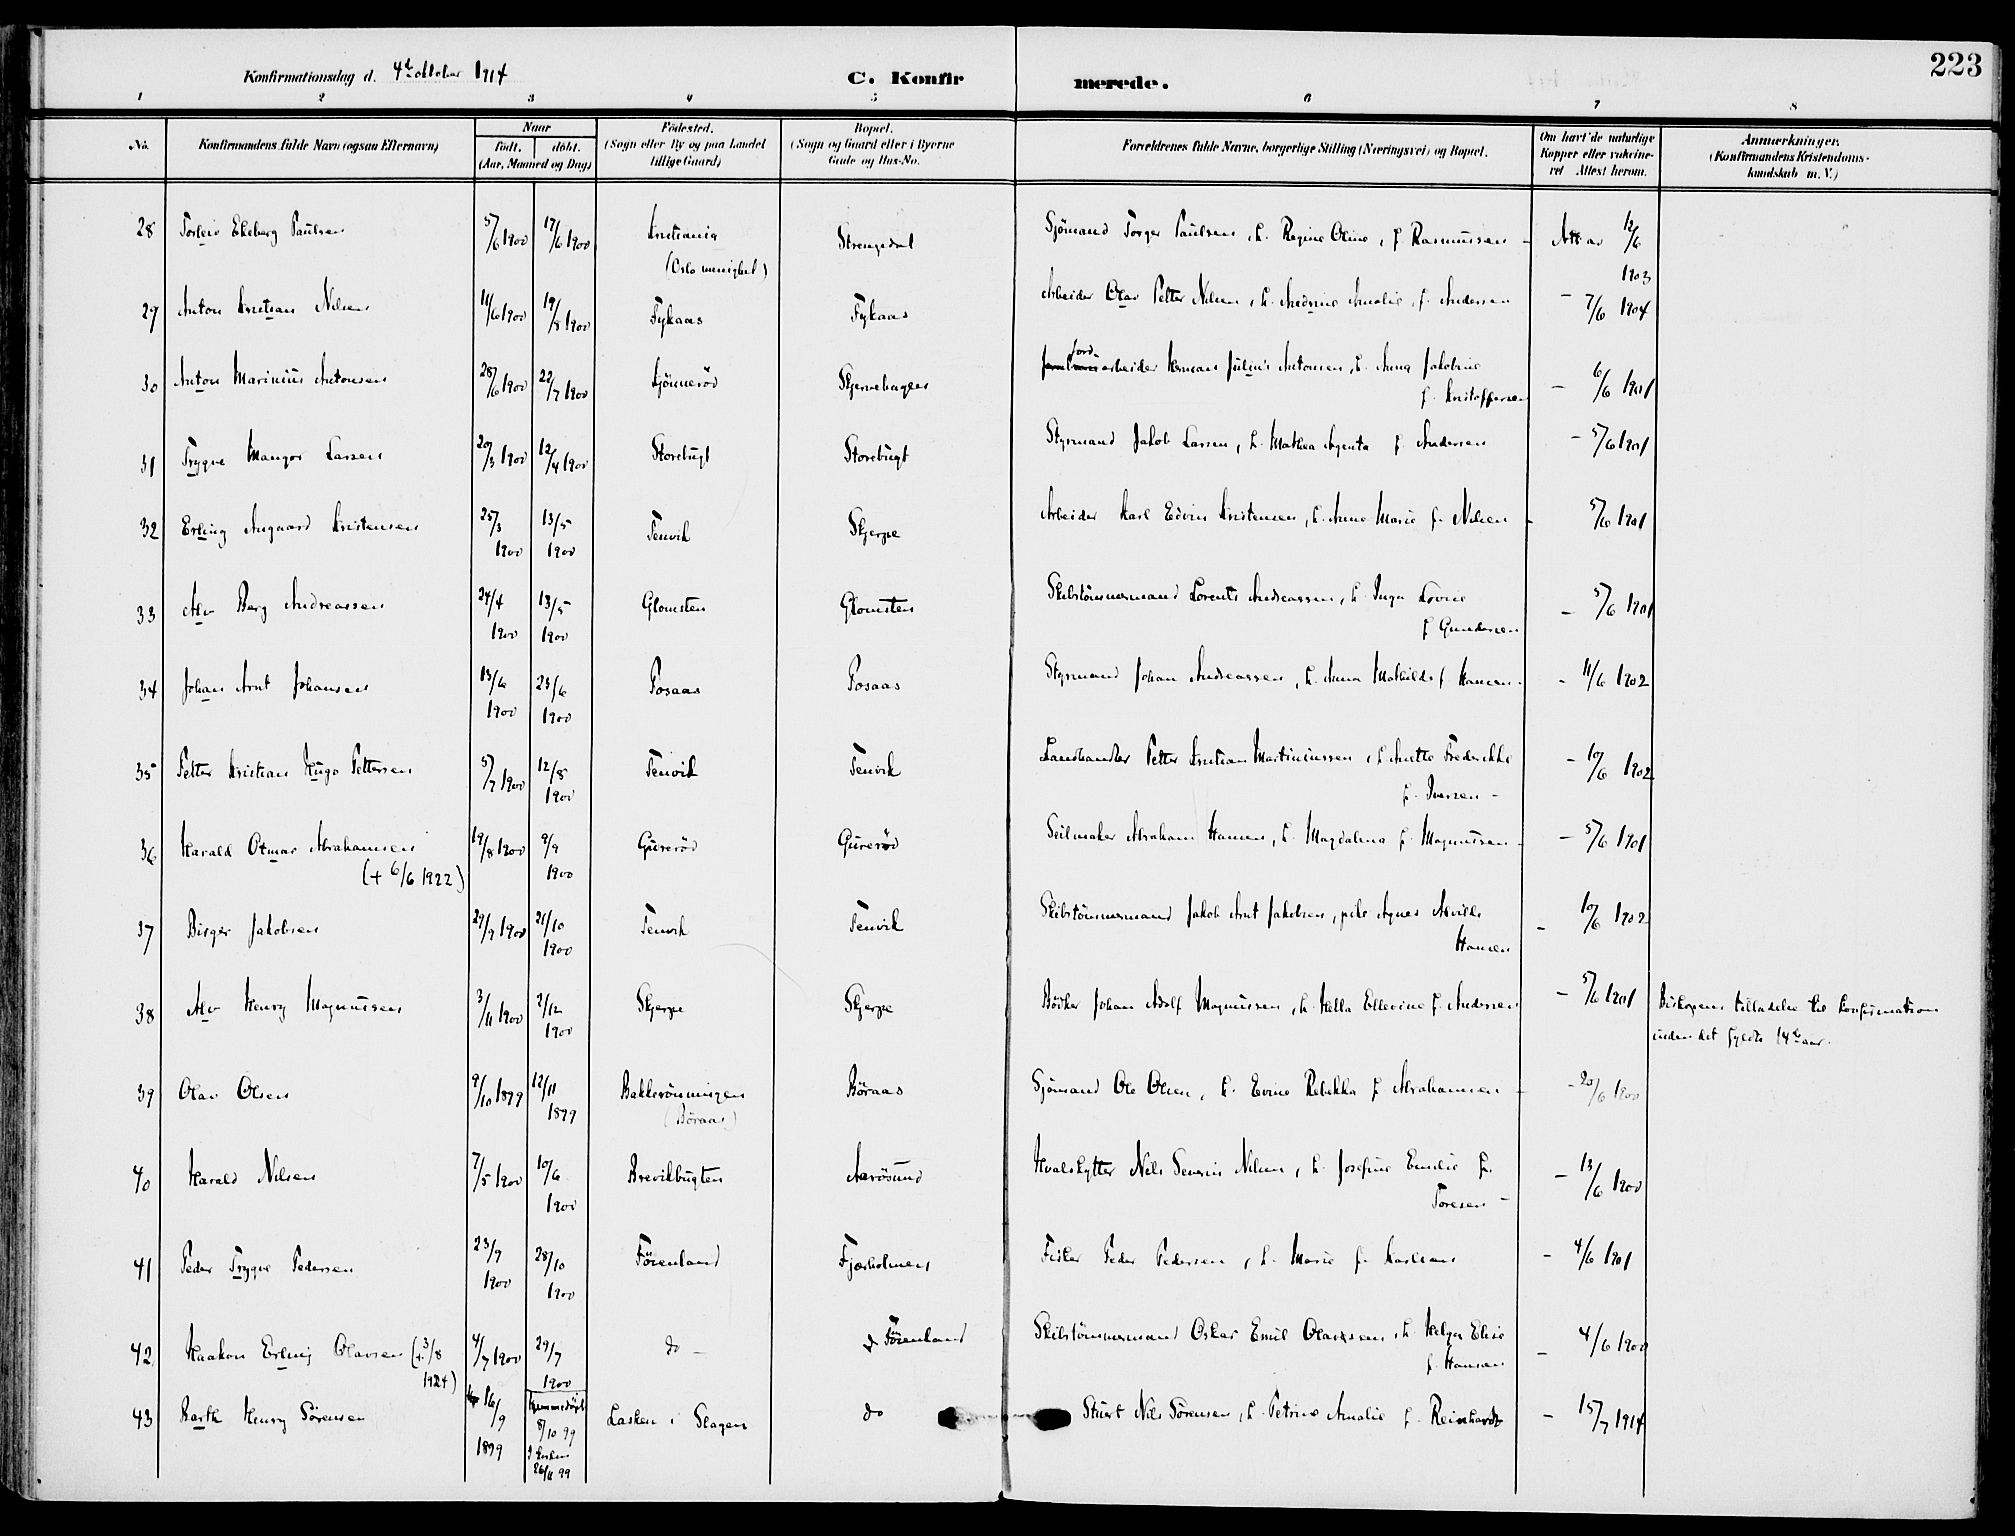 223
Konfirmationsdag d. 4de oktober 1914
C. Konfirmerede.
1 2 3 4 5 6 7 8
No. Konfirmandens fulde Navn (ogsaa Efternavn) Naar født. døbt. (Aar, Maaned og Dag) Födested. (Sogn eller By og paa Landet tillige Gaard) Bopæl. (Sogn og Gaard eller i Byerne Gade og Hus-No. Forældrenes fulde Navne, borgerlige Stilling (Næringsvei) og Bopæl. Om havt de naturlige Kopper eller vaksineret Attest herom. Anmærkninger. (Konfirmandens Kristendomskundskab m. V.)
28 Torleiv Ekeberg Paulsen 5/6 1900 17/6 1900 Kristiania (Oslo menighet) Strengsdal Sjömand Torger Paulsen, h. Regine Oline, f. Rasmussen – Att av 12/6 1903
29 Anton Kristian Nilsen 11/6 1900 19/8 1900 Fykaas Fykaas Arbeider Olav Petter Nilsen, h. Andrine Amalie, f. Andersen – 7/6 1904
30 Anton Marinius Antonsen 28/6 1900 22/7 1900 Kjönneröd Skjervehagen jordarbeider Herman Julius Antonsen, h. Anna Jakobine f. Kristoffersen – 6/6 1901
31 Trygve Mangor Larsen 20/3 1900 12/4 1900 Storebugt Storebugt Styrmand Jakob Larsen, h. Mathea Agenta f. Andersen – 5/6 1901
32 Erling Augaard Kristensen 25/3 1900 13/5 1900 Tenvik Skjerpe Arbeider Karl Edvin Kristensen, h. Anna Marie f. Nilsen – 5/6 1901
33 Alv Berg Andreassen 24/4 1900 13/5 1900 Glomsten Glomsten Skibstömmermand Lorents Andreassen, h. Inga Lovise f Gundersen – 5/6 1901
34 Johan Arnt Johansen 13/6 1900 23/6 1900 Rosaas Rosaas Styrmand Johan Andreassen, h. Anna Mathilde f Hansen – 11/6 1902
35 Petter Kristian Hugo Pettersen 5/7 1900 12/8 1900 Tenvik Tenvik Landhandler Petter Kristian Martiniussen, h. Anette Frederikke f. Iversen – – 10/6 1902
36 Harald Otmar Abrahamsen (+ 6/6 1922) 19/8 1900 9/9 1900 Gureröd Gureröd Seilmaker Abraham Hansen, h. Magdalena f. Magnussen – – 5/6 1901
37 Birger Jakobsen 29/9 1900 21/10 1900 Tenvik Tenvik Skibstömmermand Jakob Arnt Jakobsen, pike Agnes Alvilde Hansen – 10/6 1902
38 Alv Henry Magnussen 3/11 1900 2/12 1900 Skjerpe Skjerpe Bödker Johan Adolf Magnussen, h. Hella Ellevine f. Andersen – 5/6 1901 Biskopens tilladelse til konfirmation
inden det fyldte 14de aar.
39 Olav Olsen 9/10 1899 12/11 1899 Bakkerönningen (Böraas) Böraas Sjömand Ole Olsen, h. Evine Rebekka f. Abrahamsen – – 20/6 1900
40 Harald Nilsen 7/5 1900 10/6 1900 Brevikbugten Aarösund Hvalskytter Nils Severin Nilsen, h. Josefine Emilie f. Toresen – – 13/6 1900
41 Peder Trygve Pedersen 23/9 1900 28/10 1900 Töienland Fjærholmen Fisker Peder Pedersen, h. Marie f. Karlsen – 4/6 1901
42 Haakon Erling Olavsen (+ 3/8 1924) 4/7 1900 29/7 1900 do – Töienland Skibstömmermand Oskar Emil Olavssen, h. Helga Elise f. Hansen – 4/6 1900
43 Barth Henry Sörensen 16/9 1899 Hjemmedöpt 8/10 99 I kirken 26/11 99 Lasken i Slagen do Stuert Nils Sörensen, h. Petrine Amalie f. Reinhardt – 15/7 1914